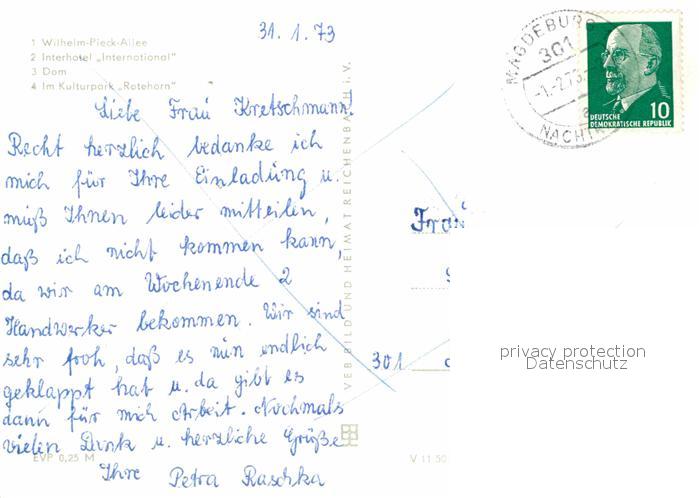 31.1.73
1 Wilhelm-Pieck-Allee
2 Interhotel „International"
3 Dom
4 Im Kulturpark „Rotehorn"
Liebe Frau Kretschmann!
Recht herzlich bedanke ich
mich für Ihre Einladung u.
muß Ihnen leider mitteilen,
daß ich nicht kommen kann,
da wir am Wochenende 2
Handwerker bekommen. Wir sind
sehr froh, daß es nun endlich
geklappt hat u. da gibt es
dann für mich Arbeit. Nochmals
vielen Dank u. herzliche Grüße
Ihre Petra Raschka
EVP 0,25 M
VEB BILD UND HEIMAT REICHENBACH i. V.
V 11 50
MAGDEBURG
301
-1.-2.73
DEUTSCHE
DEMOKRATISCHE REPUBLIK
10
Frau
301
privacy protection
Datenschutz